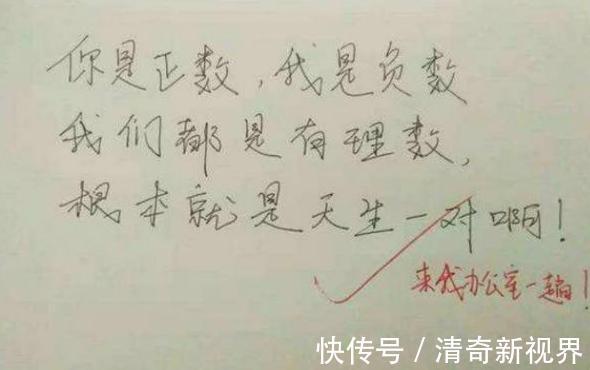 你是正数，我是负数
我们都是有理数，
根本就是天生一对啊！
来我办公室一趟！
快传号／清奇新视界